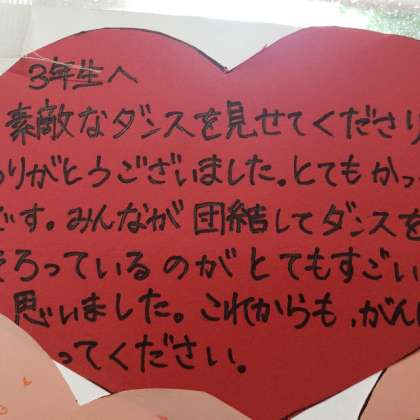 3年生へ
素敵なダンスを見せてくださり
りがとうございました。とてもかっ
です。みんなが団結してダンスを
そろっているのがとてもすごい
思いました。これからも、がん
ってください。